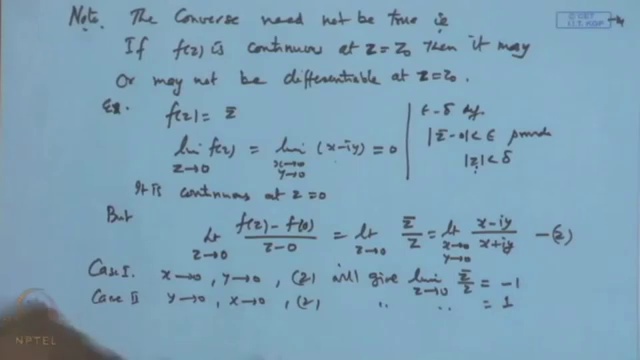 Note. The Converse need not be true ie
© CET
I.I.T. KGP
If f(z) is continuous at z = z₀ then it may
or may not be differentiable at z = z₀.
Ex. f(z) = z̄
lim_{z→0} f(z) = lim_{x→0, y→0} (x-iy) = 0
ε-δ def
|z̄-0| < ε provided
|z| < δ
It is continuous at z = 0
But lt_{z→0} (f(z) - f(0))/(z-0) = lt_{z→0} z̄/z = lt_{x→0, y→0} (x-iy)/(x+iy) —(2)
Case I. x→0, y→0, (2) will give lim_{z→0} z̄/z = -1
Case II y→0, x→0, (2) " " = 1
NPTEL